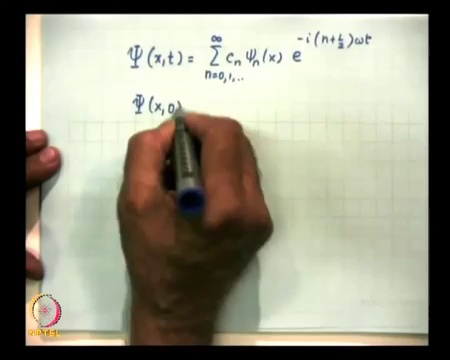 Ψ(x,t) = ∑_{n=0,1,..}^{∞} c_n ψ_n(x) e^{-i(n+½)ωt}
Ψ(x,0)
NPTEL